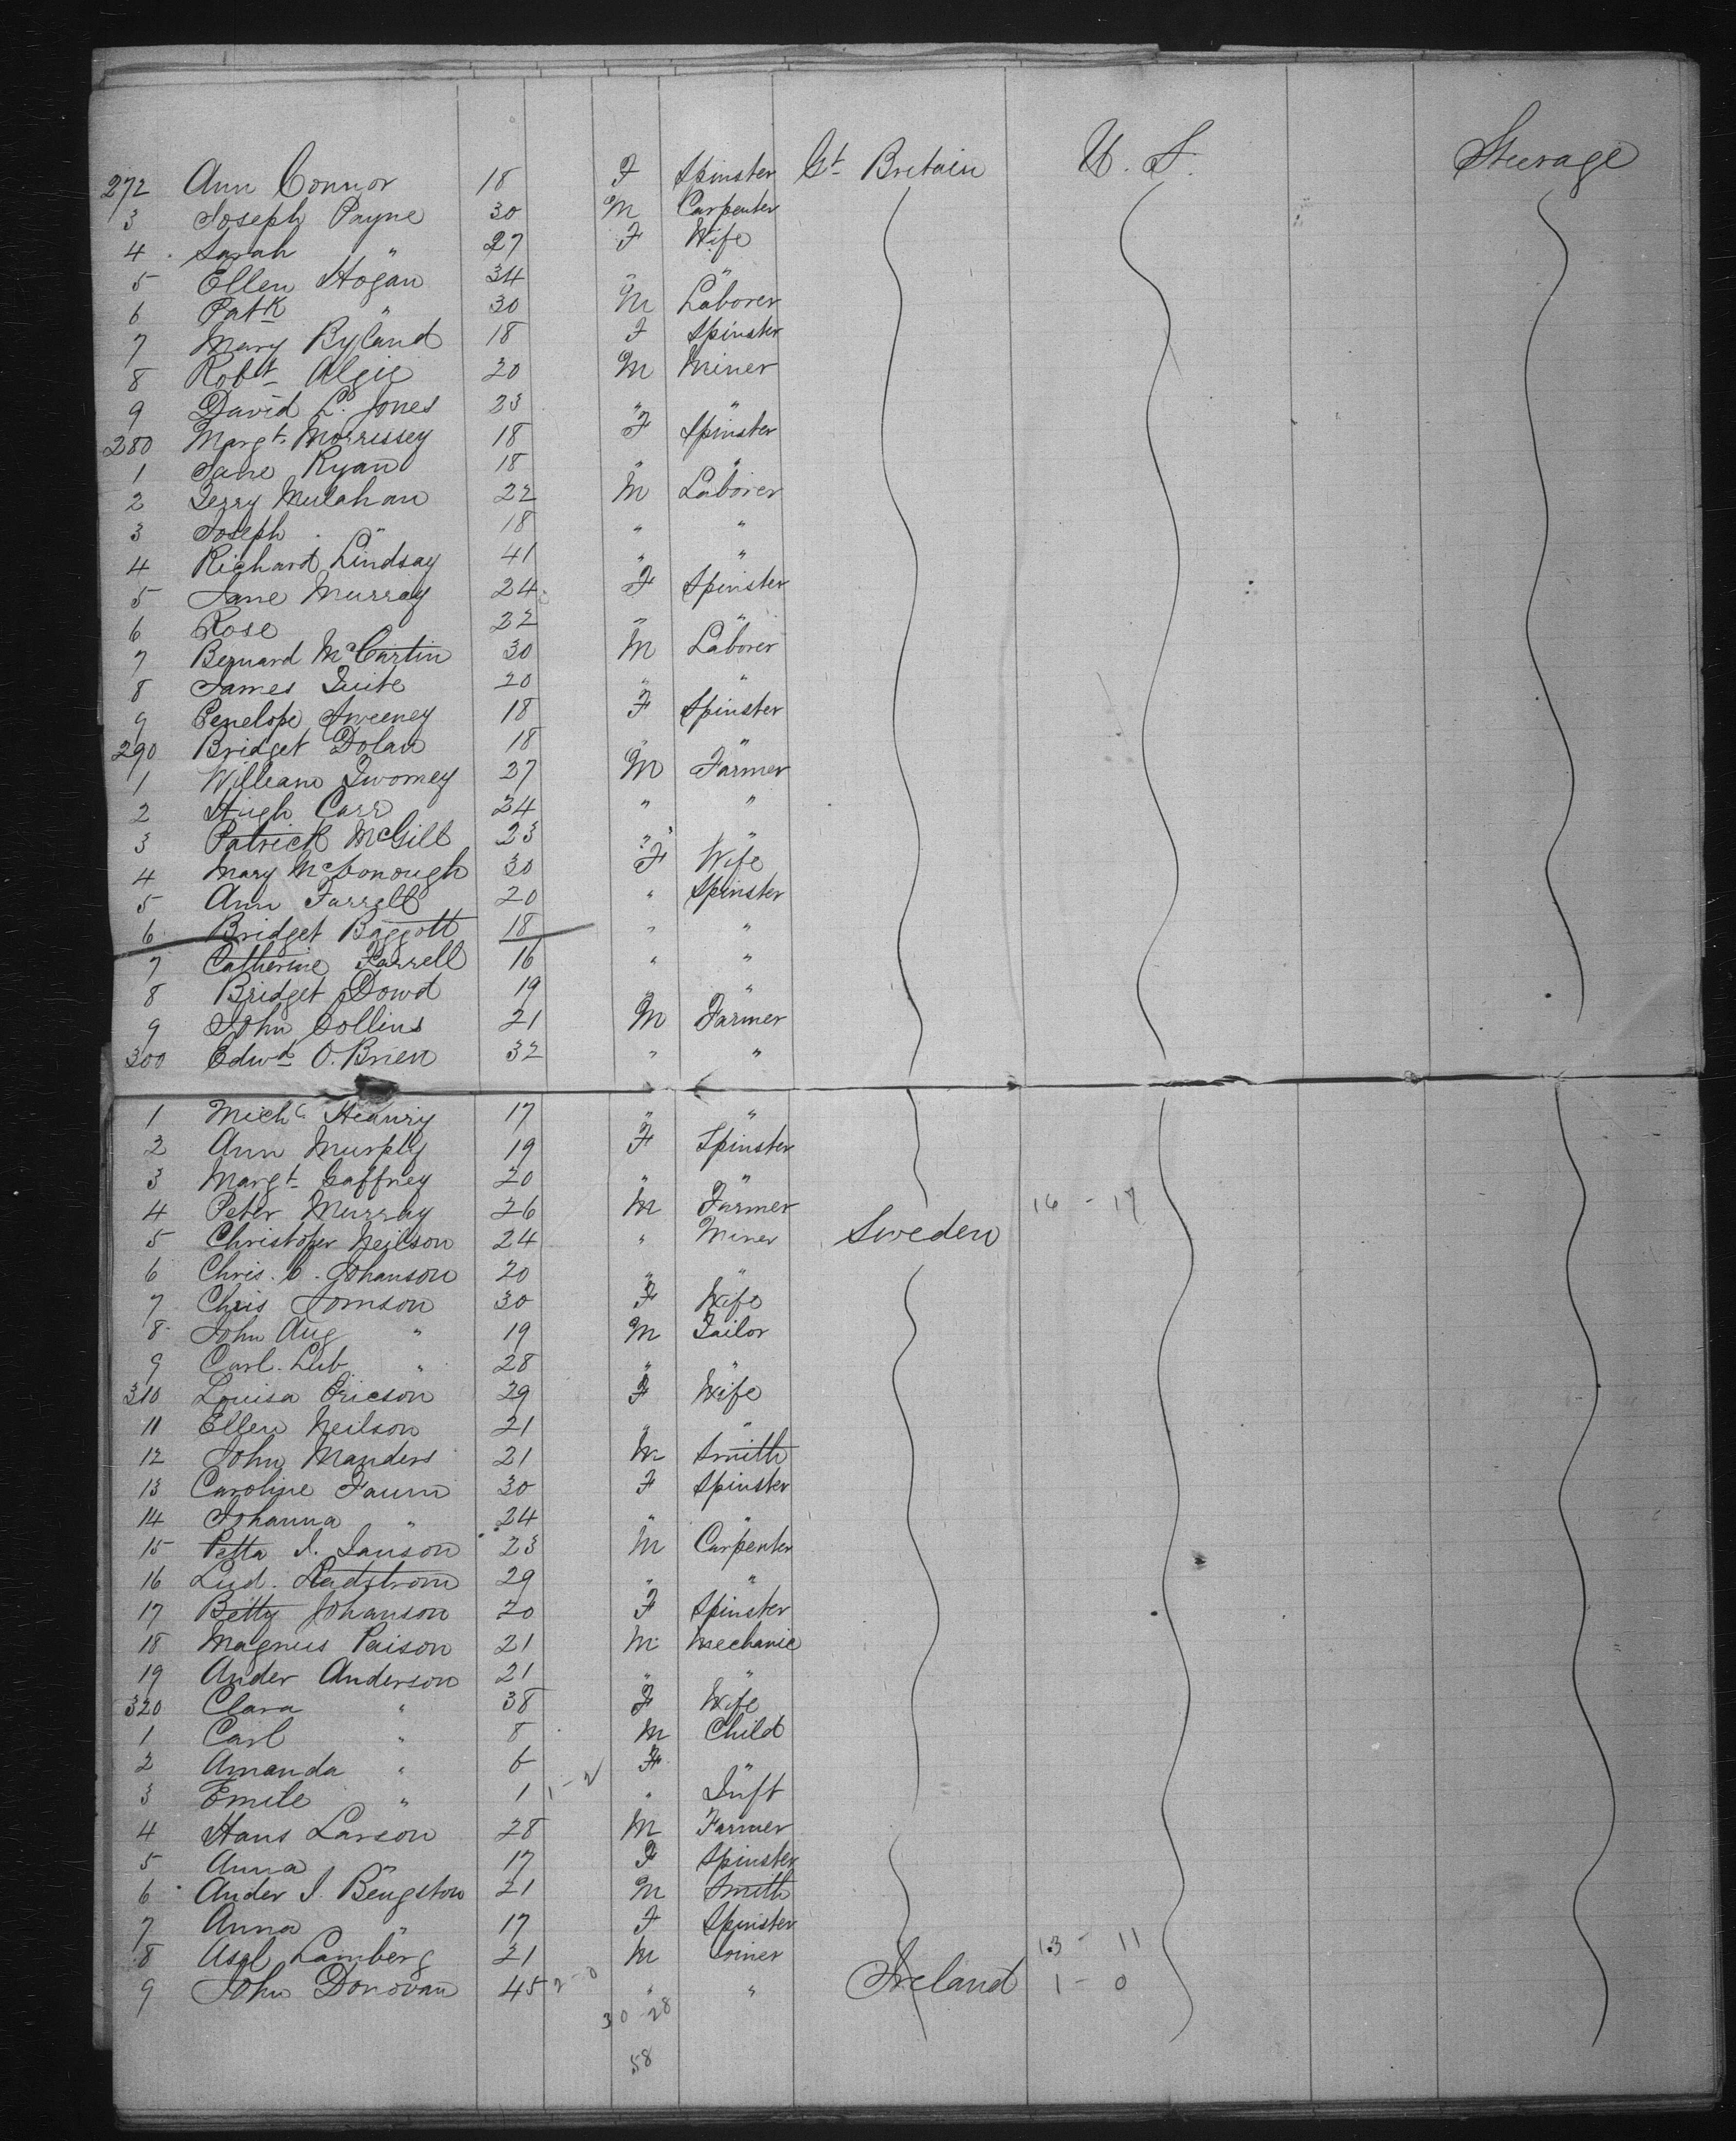 272 Ann Connor 18 F Spinster Gt Britain U. S. Steerage
3 Joseph Payne 30 M Carpenter
4 Sarah " 27 F Wife
5 Ellen Hogan 34 " "
6 Patk " 30 M Laborer
7 Mary Byland 18 F Spinster
8 Robt Algie 20 M Miner
9 David L. Jones 23 " "
280 Margt Morrissey 18 F Spinster
1 Jane Ryan 18 " "
2 Terry Mulahan 22 M Laborer
3 Joseph " 18 " "
4 Richard Lindsay 41 " "
5 Jane Murray 24 F Spinster
6 Rose 22 " "
7 Bernard McCartin 30 M Laborer
8 James Tuite 20 " "
9 Penelope Sweeney 18 F Spinster
290 Bridget Dolan 18 " "
1 William Twomey 27 M Farmer
2 Hugh Carr 24 " "
3 Patrick McGill 23 " "
4 Mary McDonough 30 F Wife
5 Ann Farrell 20 " Spinster
6 Bridget Baggott 18 " "
7 Catherine Farrell 16 " "
8 Bridget Dowd 19 " "
9 John Collins 21 M Farmer
300 Edwd O.Brien 32 " "
1 Michl Heanry 17 " "
2 Ann Murphy 19 F Spinster
3 Margt Gaffney 20 " "
4 Peter Murray 26 M Farmer 16 - 17
5 Christofer Neilson 24 " Miner Sweden
6 Chris. O. Johanson 20 " "
7 Chris Jomson 30 F Wife
8 John Aug " 19 M Tailor
9 Carl. " 28 " "
310 Louisa Ericson 29 F Wife
11 Ellen Neilson 21 " "
12 John Manders 21 M Smith
13 Caroline Faum 30 F Spinster
14 Johanna " 24 " "
15 Petta J. Janson 23 M Carpenter
16 Lud. Ladstrom 29 " "
17 Betty Johanson 20 F Spinster
18 Magnus Paison 21 M Mechanic
19 Ander Anderson 21 " "
320 Clara " 38 F Wife
1 Carl " 8 M Child
2 Amanda " 6 F "
3 Emile " 1 " Inft
4 Hans Larson 28 M Farmer
5 Anna " 17 F Spinster
6 Ander J. Bengston 21 M Smith
7 Anna " 17 F Spinster
8 Axel Lamberg 21 M Joiner 13 - 11
9 John Donovan 45 2-0 " " Ireland 1 - 0
30-28
58